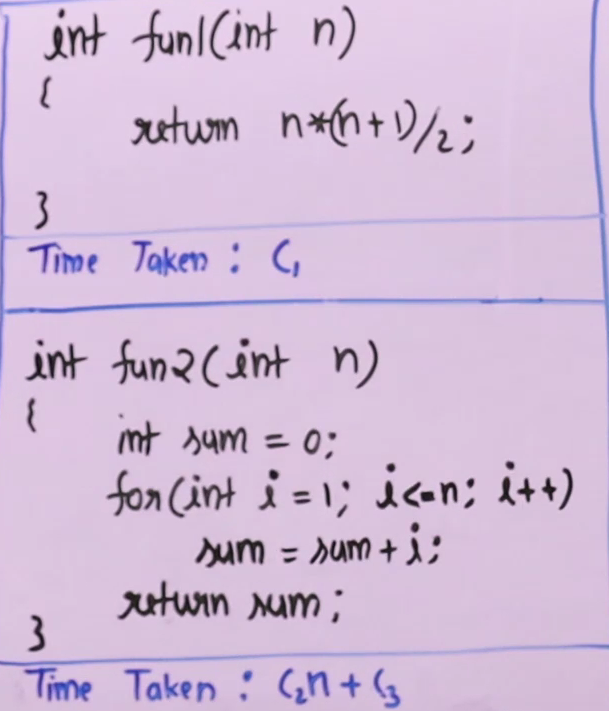 int fun1(int n)
{
return n*(n+1)/2;
}
Time Taken : C₁
int fun2(int n)
{
int sum = 0;
for(int i = 1; i<=n; i++)
sum = sum + i;
return sum;
}
Time Taken : C₂n + C₃